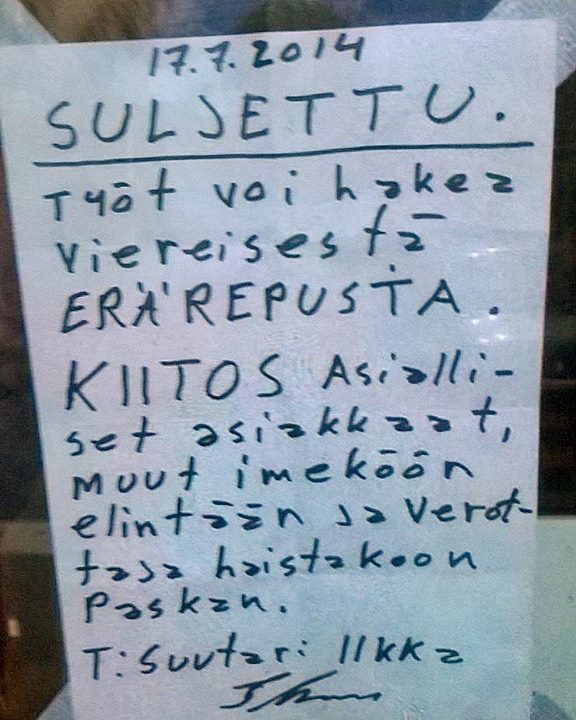 17.7.2014
SULJETTU.
Työt voi hakea
viereisestä
ERÄREPUSTA.
KIITOS Asialli-
set asiakkaat,
muut imeköön
elintään ja verot-
taja haistakoon
paskan.
T: Suutari Ilkka